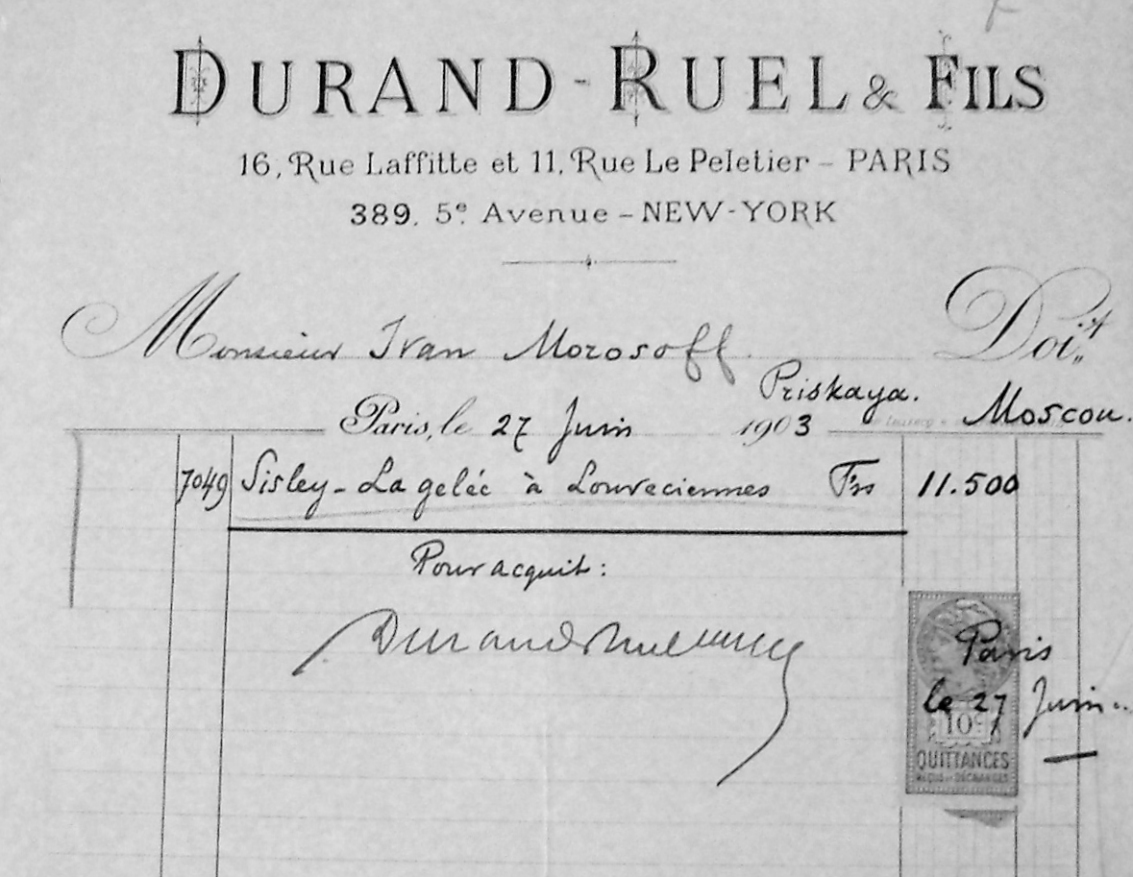 DURAND-RUEL & FILS
16, Rue Laffitte et 11, Rue Le Peletier – PARIS
389, 5e Avenue – NEW-YORK
Monsieur Ivan Morosoff Doit
Priskaya.
Paris, le 27 Juin 1903 Moscou.
7049 Sisley - La gelée à Louveciennes Frs 11.500
Pour acquit:
Durand Ruel
Paris
le 27 Juin
10c
QUITTANCES
REÇUS ET DÉCHARGES